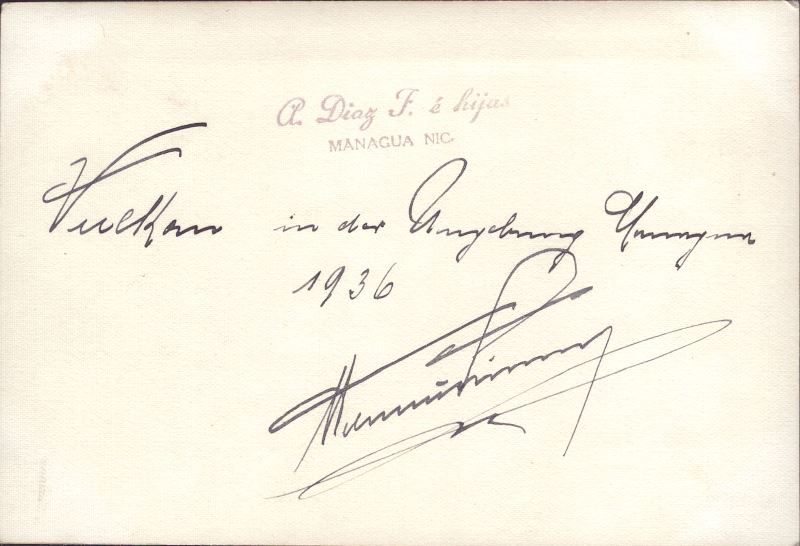 A. Diaz F. é hijas
MANAGUA NIC.
Vulkan in der Umgebung Managua
1936